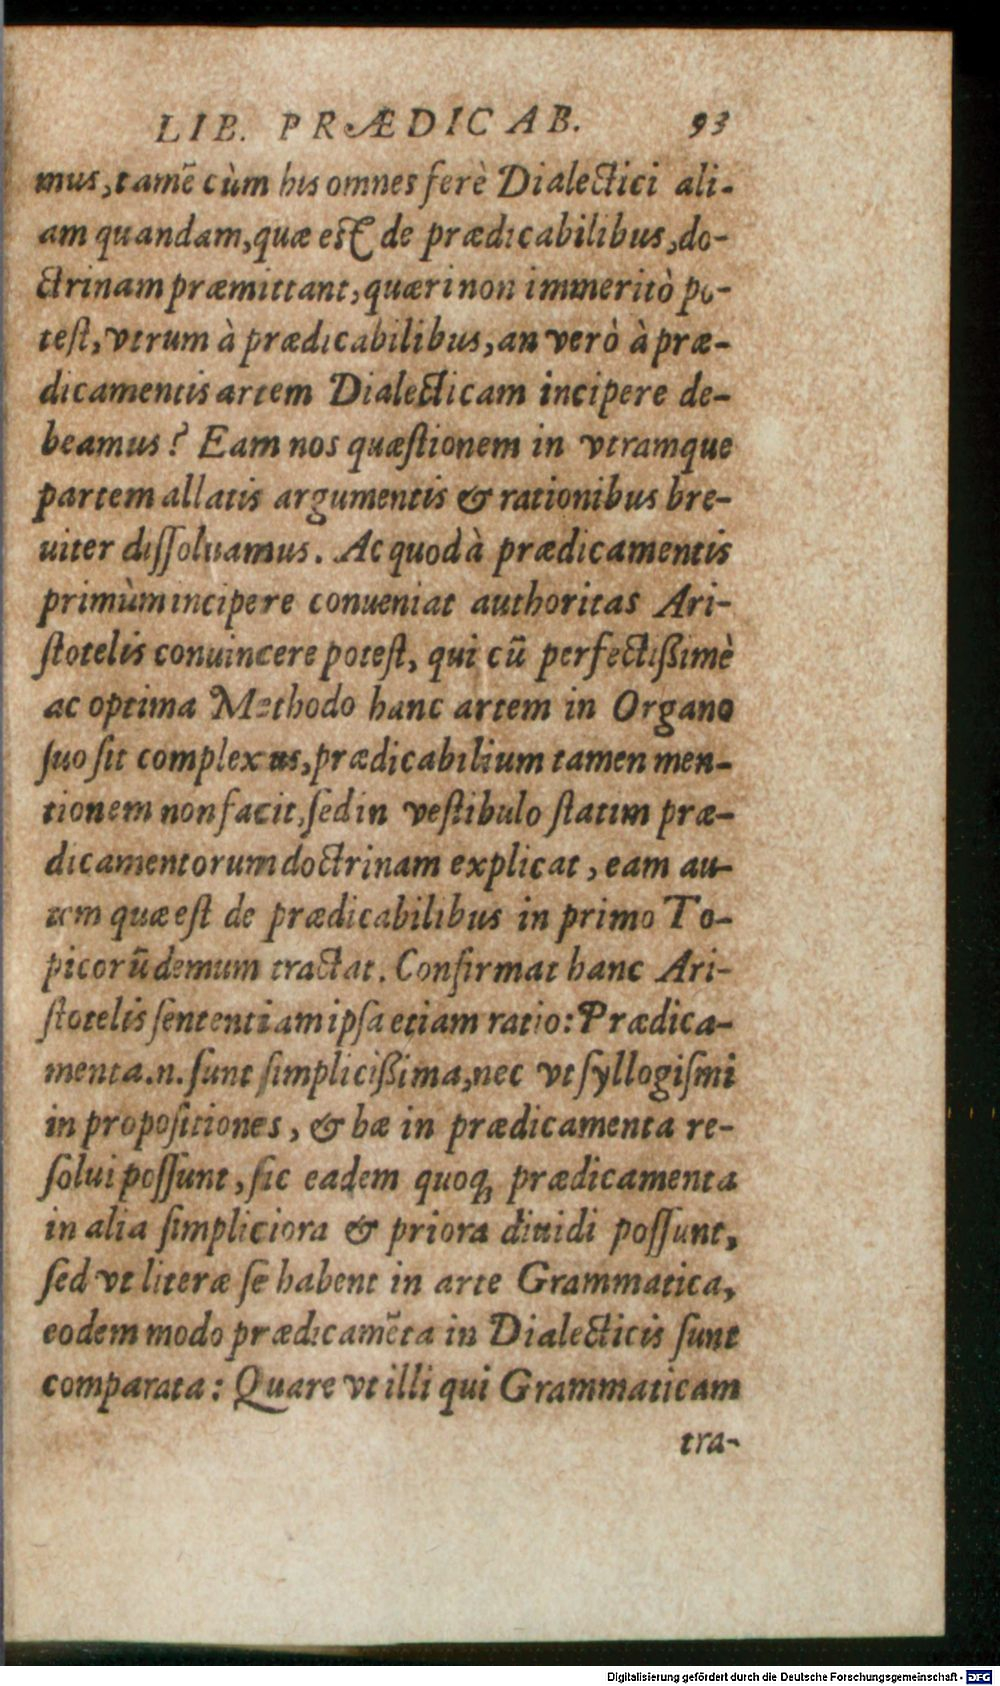 LIB. PRÆDICAB. 93
mus, tamē cùm his omnes ferè Dialectici ali-
am quandam, quæ est de prædicabilibus, do-
ctrinam præmittant, quæri non immeritò po-
test, vtrum à prædicabilibus, an verò à præ-
dicamentis artem Dialecticam incipere de-
beamus? Eam nos quæstionem in vtramque
partem allatis argumentis & rationibus bre-
uiter dissoluamus. Ac quod à prædicamentis
primùm incipere conueniat authoritas Ari-
stotelis conuincere potest, qui cū perfectißimè
ac optima Methodo hanc artem in Organo
suo sit complexus, prædicabilium tamen men-
tionem non facit, sed in vestibulo statim præ-
dicamentorum doctrinam explicat, eam au-
tem quæ est de prædicabilibus in primo To-
picorū demum tractat. Confirmat hanc Ari-
stotelis sententiam ipsa etiam ratio: Prædica-
menta.n. sunt simplicißima, nec vt syllogismi
in propositiones, & hæ in prædicamenta re-
solui possunt, sic eadem quoq; prædicamenta
in alia simpliciora & priora diuidi possunt,
sed vt literæ se habent in arte Grammatica,
eodem modo prædicamēta in Dialecticis sunt
comparata: Quare vt illi qui Grammaticam
tra-
Digitalisierung gefördert durch die Deutsche Forschungsgemeinschaft - DFG